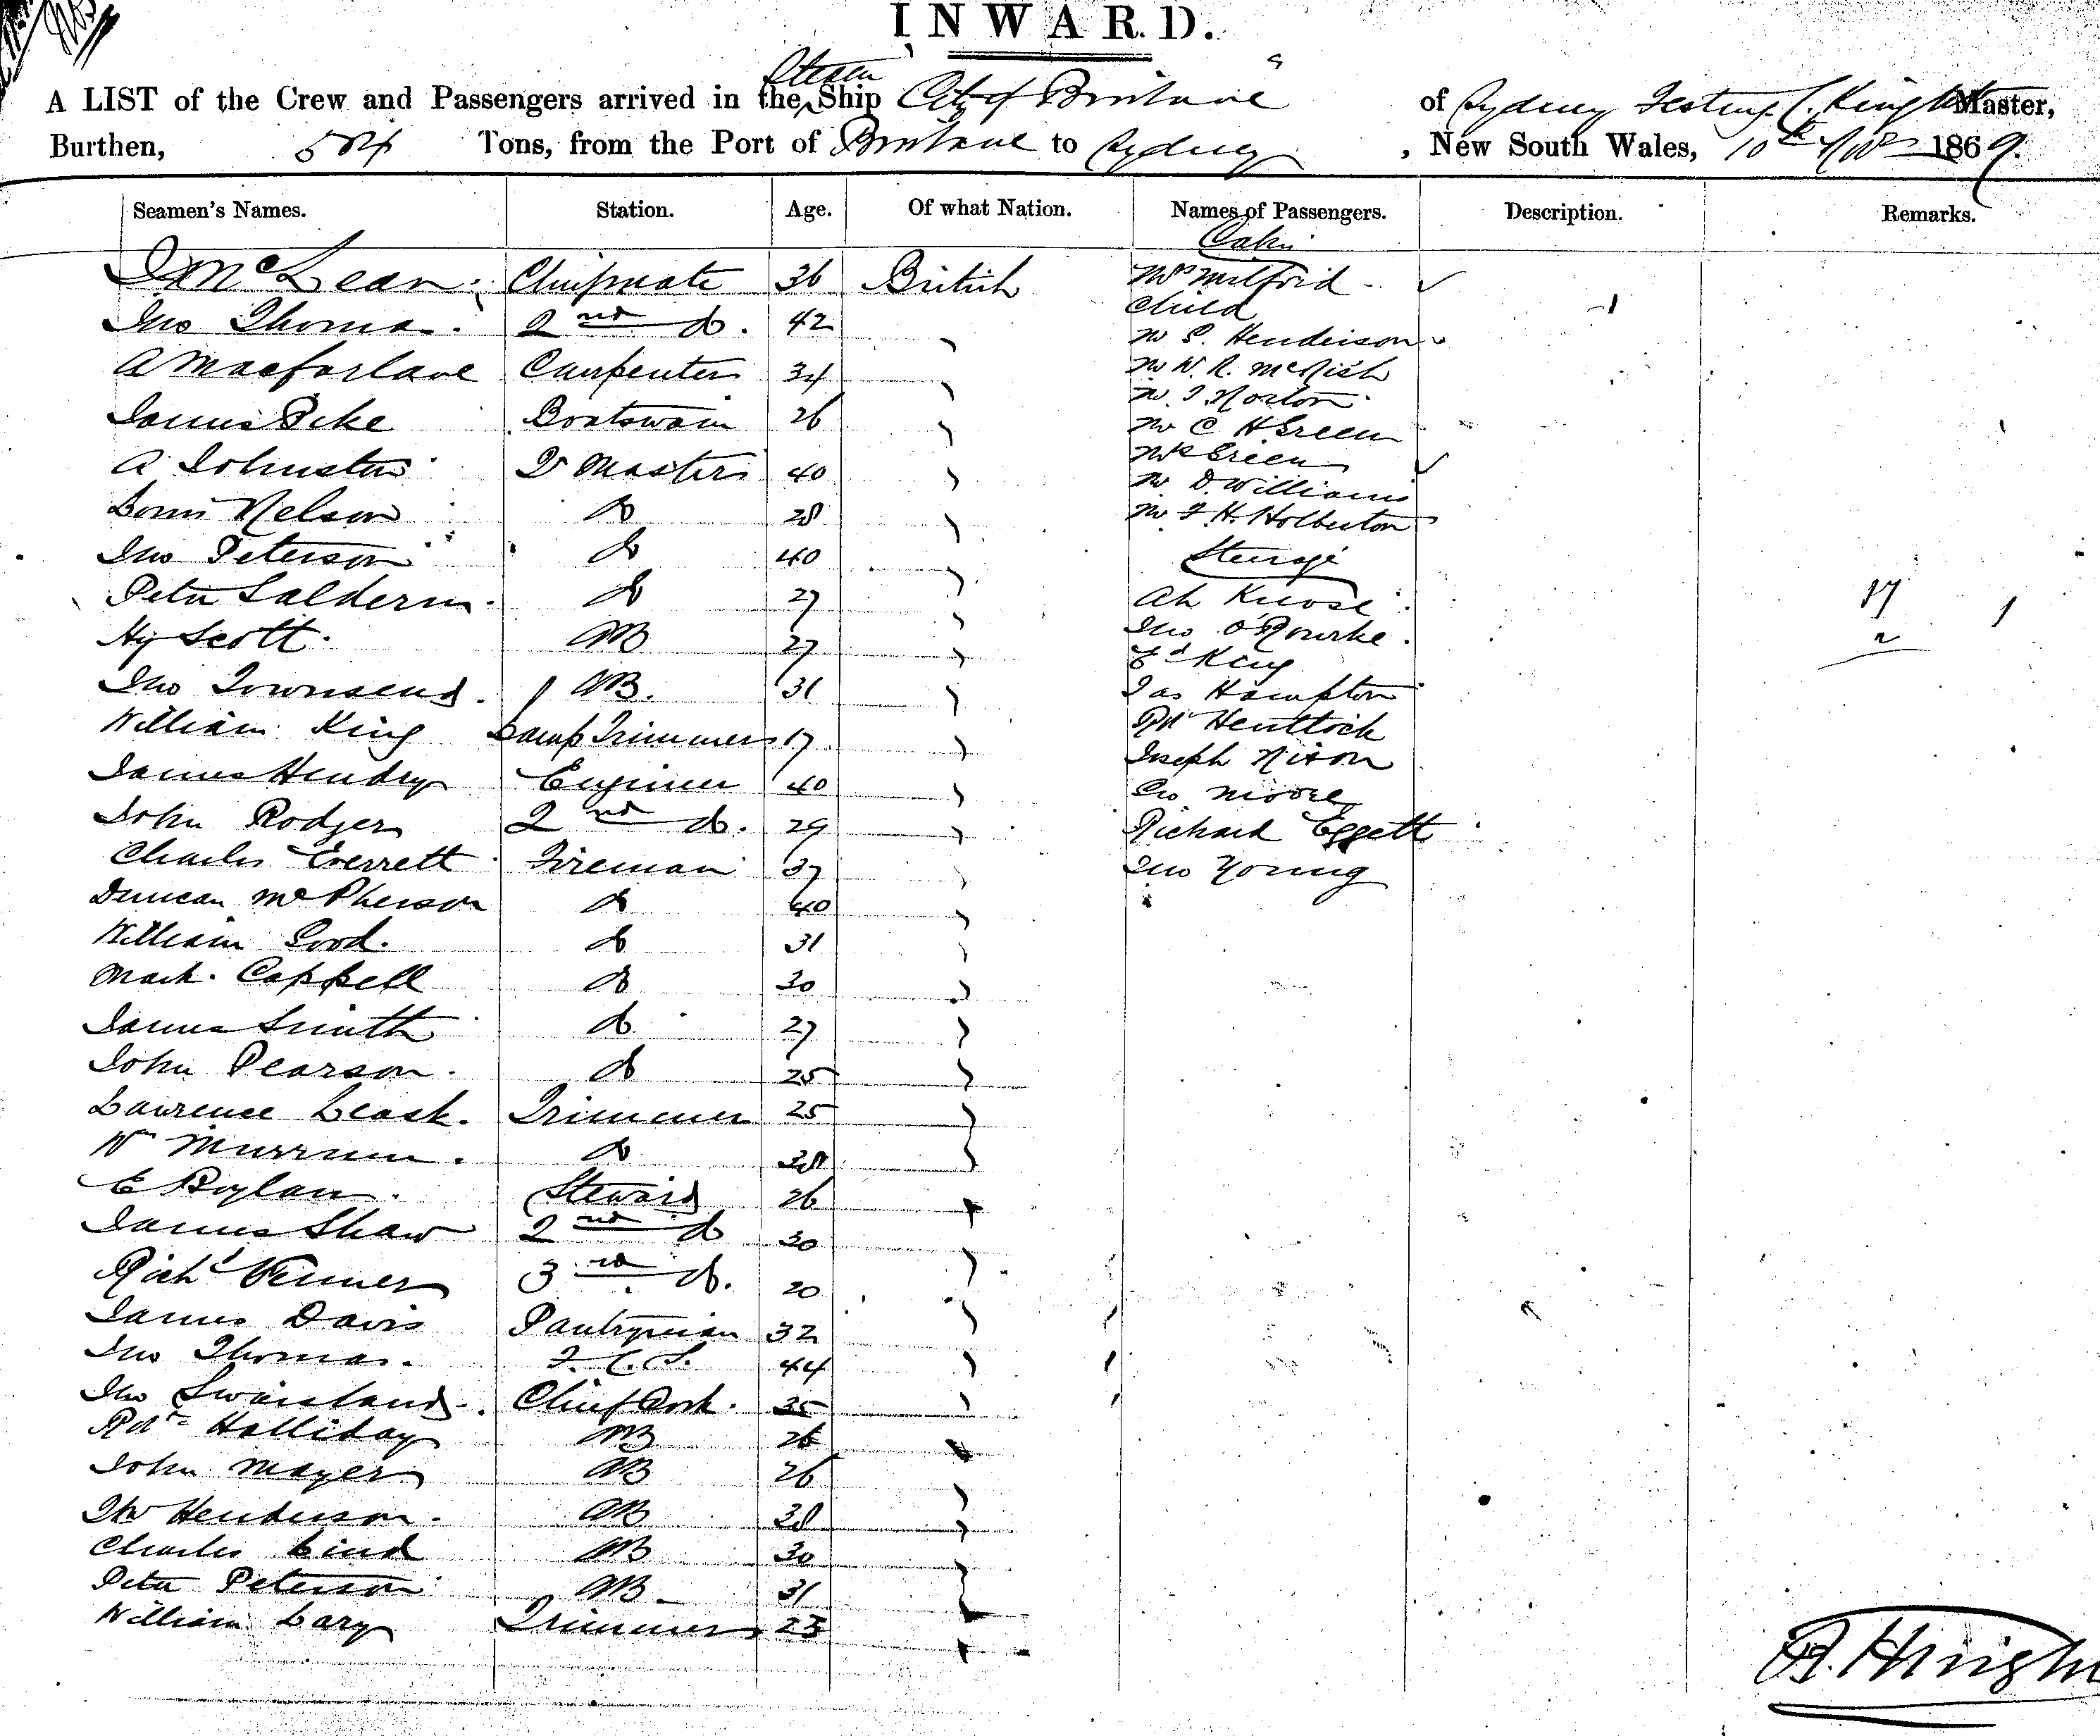 INWARD.
A LIST of the Crew and Passengers arrived in the Steam Ship "City of Brisbane" of Sydney Master,
Burthen, 504 Tons, from the Port of Brisbane to Sydney, New South Wales, 10th Novr 1869.
Seamen's Names. Station. Age. Of what Nation. Names of Passengers. Description. Remarks.
Cabin
McLean Chief mate 36 British Mrs Milford
Child
Jno Thomas. 2nd do. 42
Mr S. Henderson
A Macfarlane Carpenter 34 Mr W. R. McNish
Mr J Norton
James Pike Boatswain 26 Mr C H Green
A Johnston Q Masters 40 Mrs Green
Mr D. Williams
Louis Nelson do 28 Mr F. H. Holberton
Jno Peterson do 40 Steerage
Peter do 27 Ah
Hy Scott AB 27 Jno O'Rourke
Ed King
Jno Townsend AB. 31 Jas Hampton
William King Lamp Trimmer 17 Rbt
Joseph Nixon
James Hendry Engineer 40 Geo Moore
John Rodger 2nd do. 29 Richard Eggett
Charles Everrett Fireman 37 Jno Young
Duncan McPherson do 40
William Good. do 31
Mark. Cappell do 30
James Smith do 27
John Pearson. do 25
Lawrence Leask. Trimmer 25
Wm do 38
E Boylan. Steward 26
James Shaw 2nd do 30
Richd Venner 3rd do. 20
James Davis Pantryman 32
Jno Thomas. F. C. S. 44
Jno Swaisland. Chief Cook. 35
Rbt Halliday AB 26
John Mayer AB 26
Jno Henderson. AB 38
Charles Lind AB 30
Peter Peterson AB 31
William Lary Trimmer 23